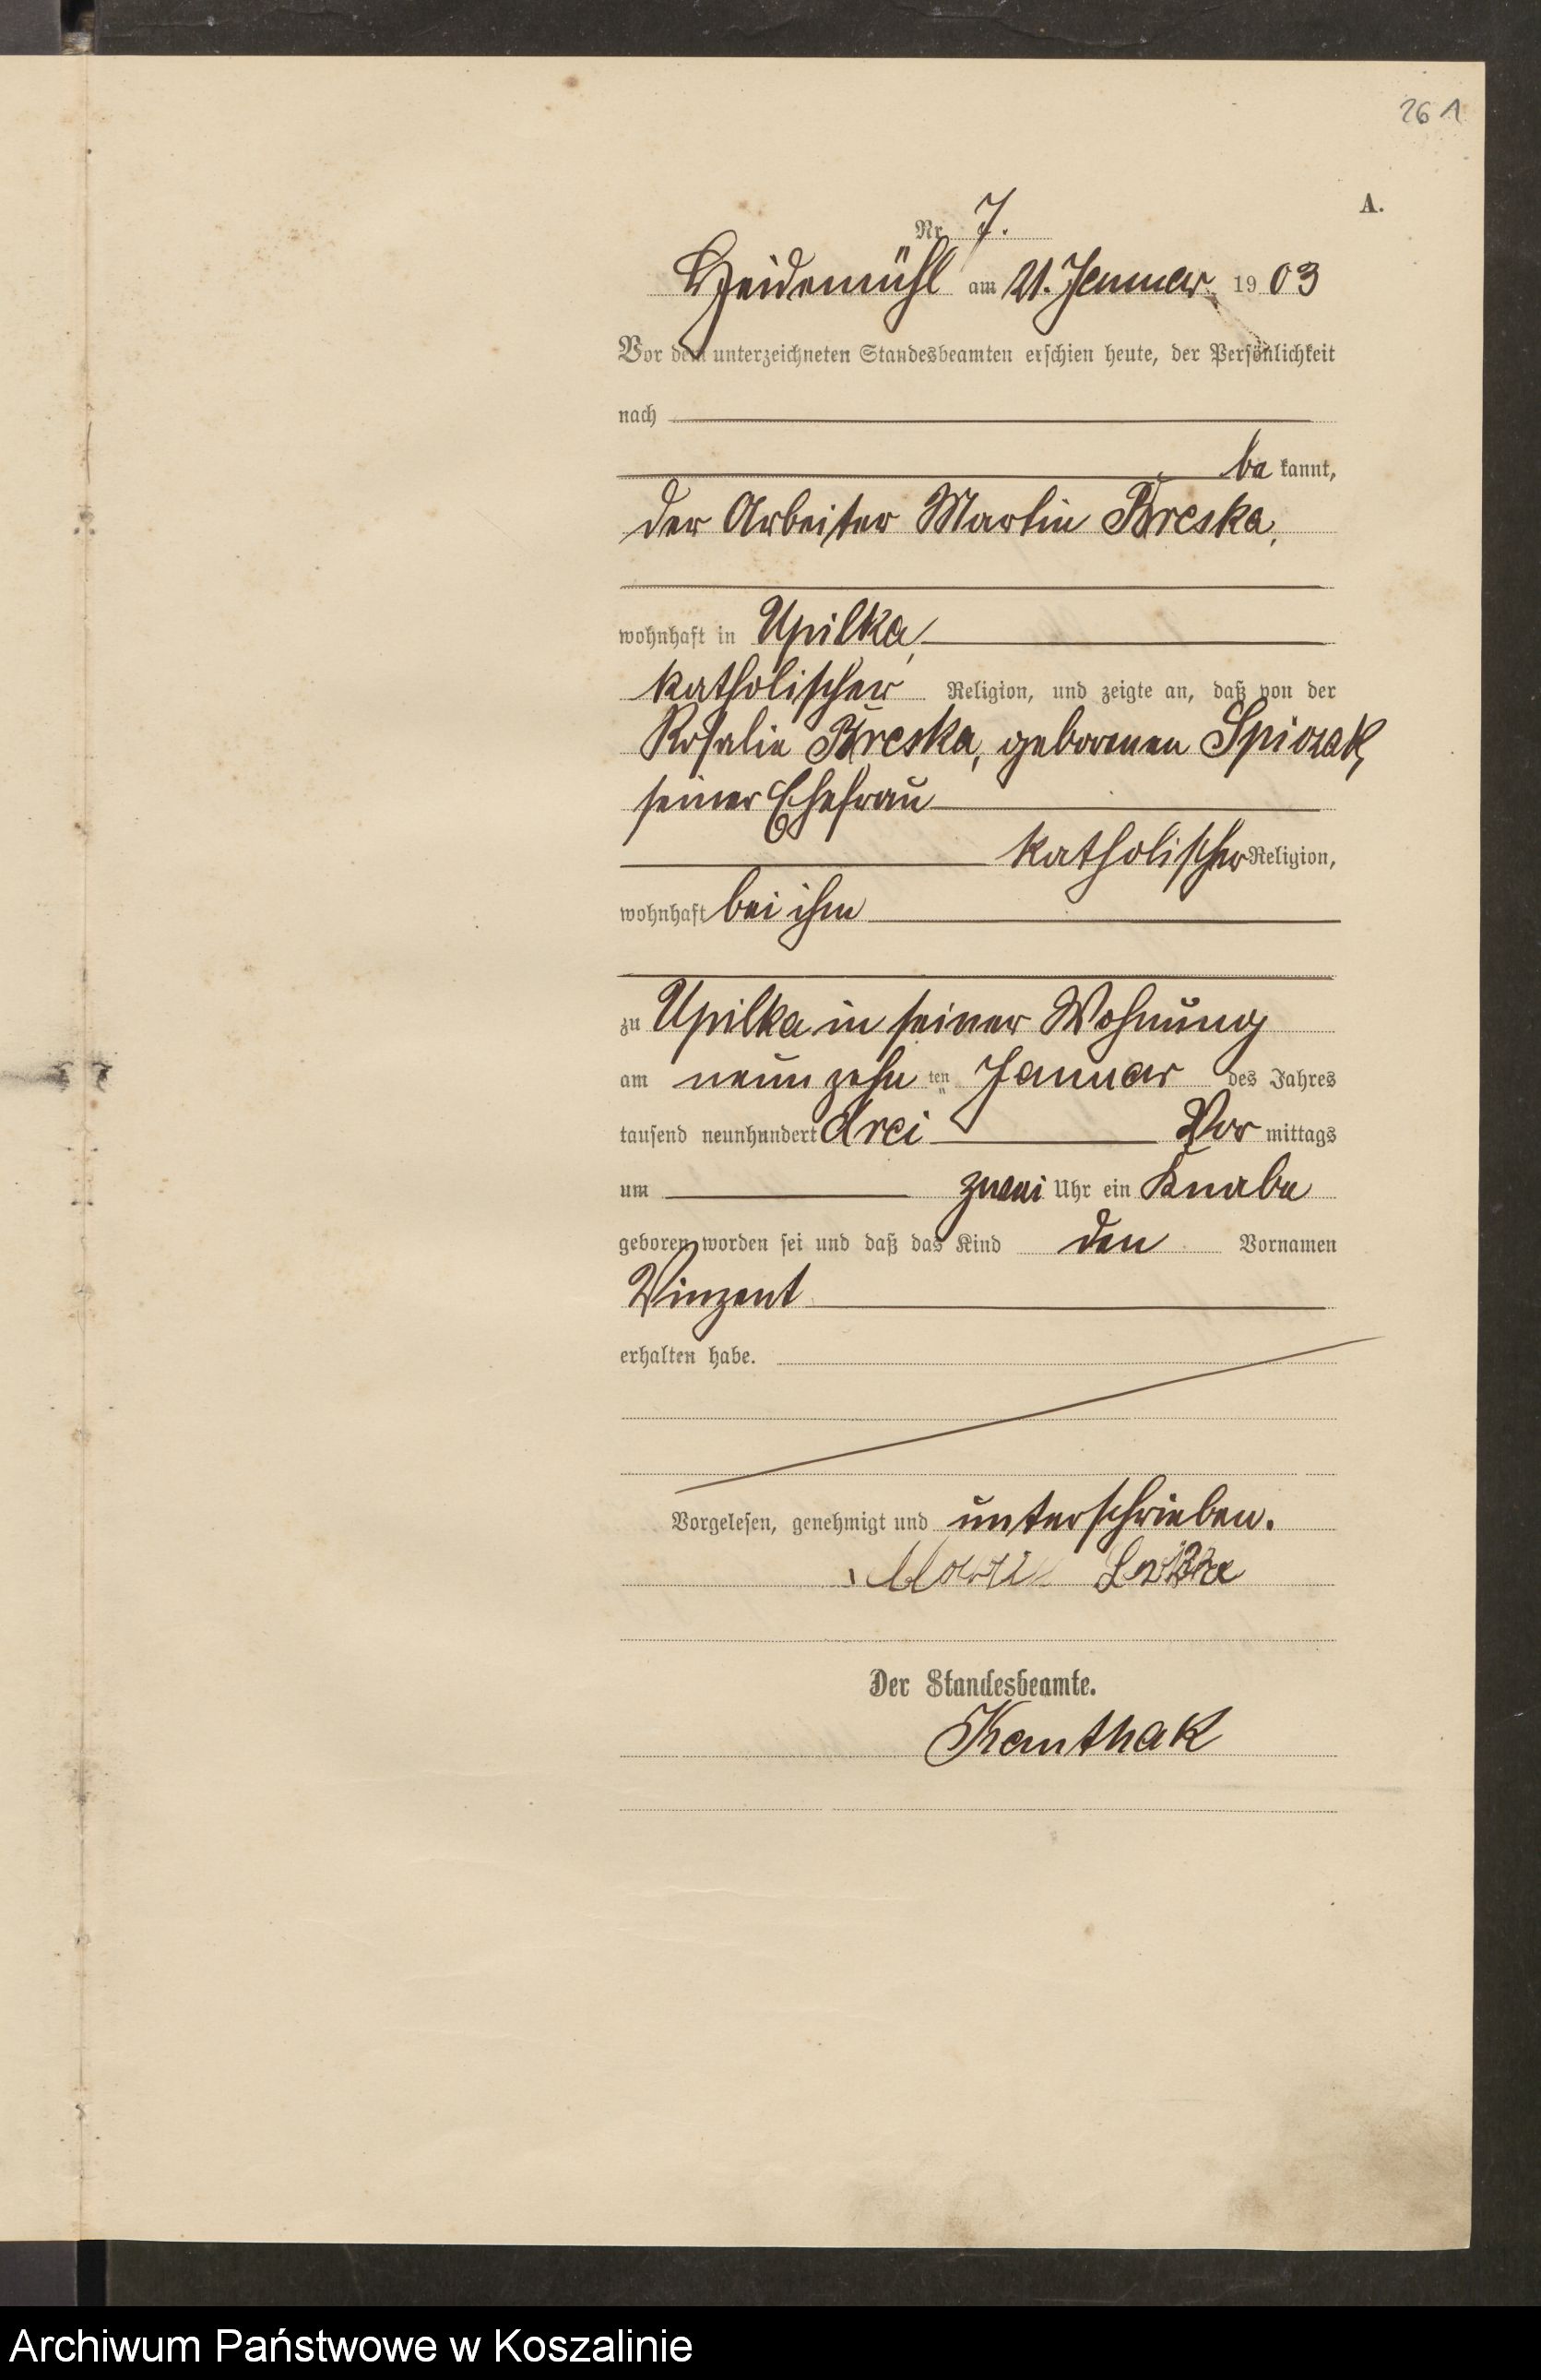 261
A.
Nr. 7.
Heidemühl am 21. Januar 1903
Vor dem unterzeichneten Standesbeamten erschien heute, der Persönlichkeit
nach
be kannt,
der Arbeiter Martin Breska,
wohnhaft in Upilka,
katholischer Religion, und zeigte an, daß von der
Rosalie Breska, geborenen
seiner Ehefrau
katholischer Religion,
wohnhaft bei ihm
zu Upilka in seiner Wohnung
am neunzehn ten Januar des Jahres
tausend neunhundert drei Vor mittags
um zwei Uhr ein Knabe
geboren worden sei und daß das Kind den Vornamen
Vinzent
erhalten habe.
Vorgelesen, genehmigt und unterschrieben.
Der Standesbeamte.
Kanthak
Archiwum Państwowe w Koszalinie